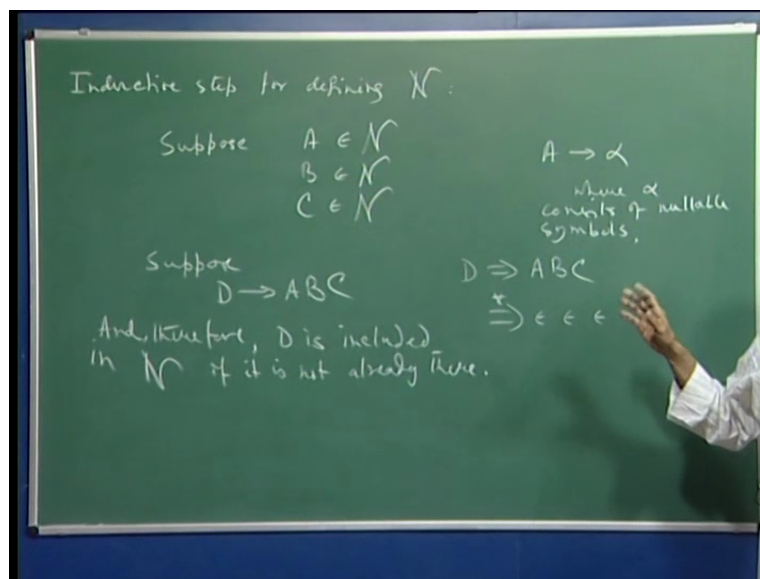 Inductive step for defining N :
Suppose A ∈ N
B ∈ N
C ∈ N
Suppose
D → ABC
And, therefore, D is included
in N if it is not already there.
A → α
where α
consists of nullable
symbols.
D ⇒ ABC
*⇒ ε ε ε